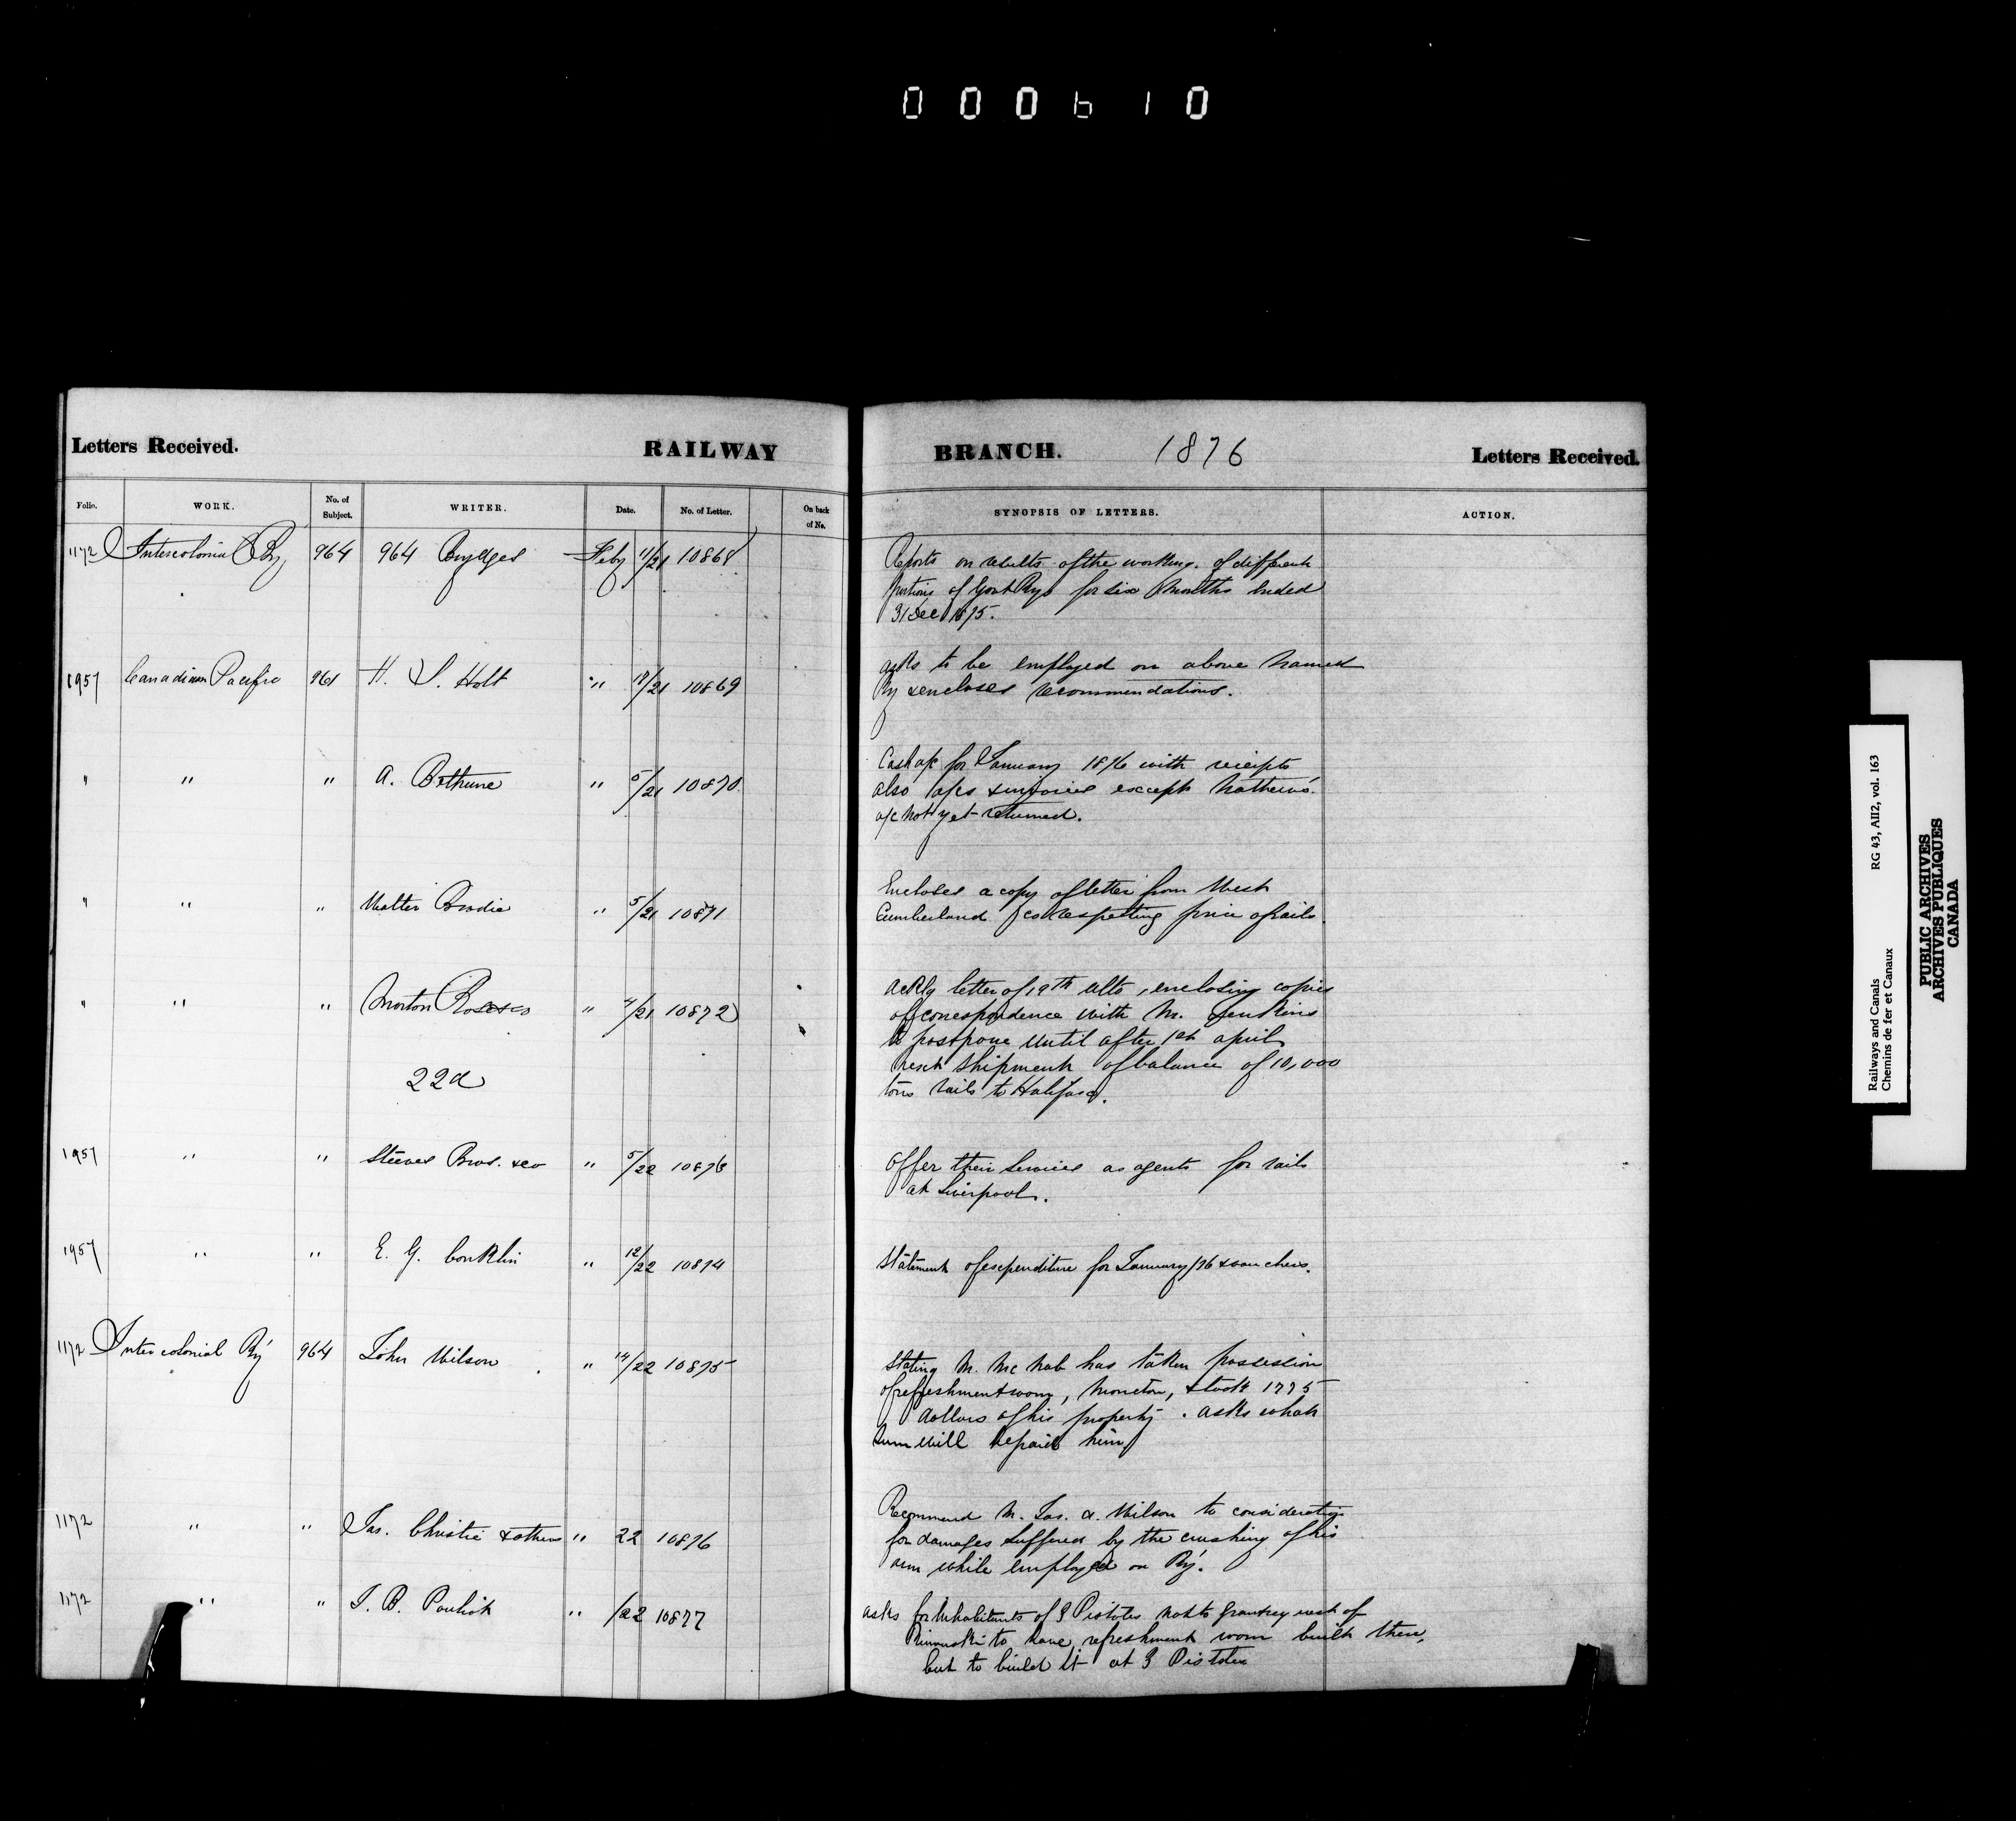 000610
Letters Received. RAILWAY BRANCH. 1876 Letters Received.
Folio. WORK. No. of Subject. WRITER. Date. No. of Letter. On back of No. SYNOPSIS OF LETTERS. ACTION.
1172 Intercolonial Ry 964 964 Brydges Feby 11/21 10868 Reports on results of the working of different
portions of Govt Rys for six months ended
31 Dec 1875.
1957 Canadian Pacific 961 H. S. Holt " 18/21 10869 asks to be employed on above named
Ry & encloses recommendations.
" " " A. Bethune " 5/21 10870 Cash a/c for January 1876 with receipts
also a/cs & invoices except
a/c not yet returned.
" " " Walter Brodie " 5/21 10871 Encloses a copy of letter from West
Cumberland Co respecting price of rails.
" " " Morton Rose & co " 4/21 10872 Ackly letter of 19th ulto, enclosing copies
of correspondence with Mr. Jenkins
to postpone until after 1st april
next shipment of balance of 10,000
tons rails to Halifax.
22d
1957 " " Steeves Bros. & co " 5/22 10873 Offer their services as agents for rails
at Liverpool.
1957 " " E. G. Conklin " 12/22 10874 Statement of expenditure for January /76 & vouchers.
1172 Intercolonial Ry 964 John Wilson " 14/22 10875 Stating Mr. McNab has taken possession
of refreshment room, Moncton, & took 1775
dollars of his property. asks what
sum will be paid him
1172 " " Jas. Christie & others " 22 10876 Recommend Mr. Jas. A. Wilson to consideration
for damages suffered by the crushing of his
arm while employed on Ry.
1172 " " J. B. Pouliot " /22 10877 asks for Inhabitants of 3 Pistoles not to grant req uest of
Rimouski to have refreshment room built there,
but to build it at 3 Pistoles
Railways and Canals RG 43, AII2, vol. 163
Chemins de fer et Canaux
PUBLIC ARCHIVES
ARCHIVES PUBLIQUES
CANADA